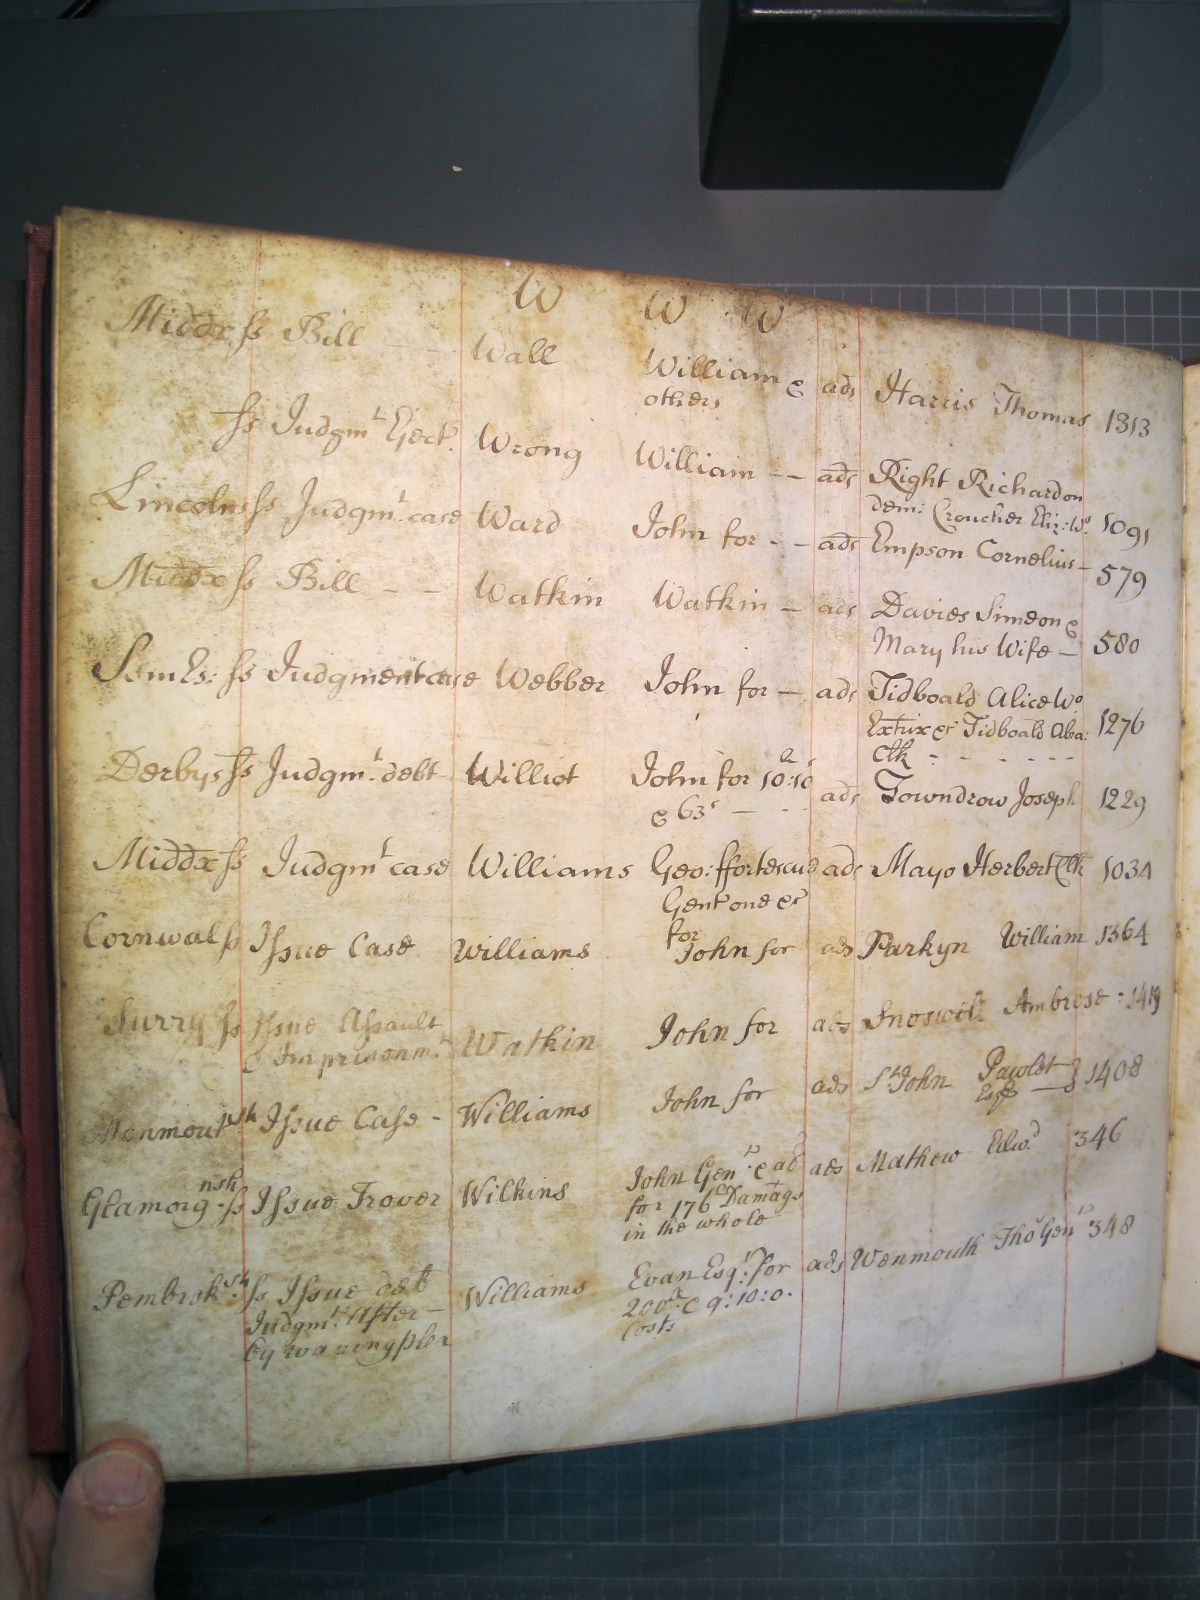 W W W
Middx ss Bill — — Wall William & ads Harris Thomas 1313
others
ss Judgmt Eject. Wrong William — — ads Right Richard on
dem: Croucher Eliz: Wo. 1091
Lincoln ss Judgmt. case Ward John for - - ads Empson Cornelius - 579
Middx ss Bill - - Watkin Watkin — ads Davies Simeon &
Mary his Wife — 580
Somts: ss Judgment case Webber John for — ads Tidboald Alice Wo
Extrix &c Tidboald Aba: 1276
Clk - - - - - -
Derbys ss Judgmt. debt Williot John for 10:10 ads Towndrow Joseph 1229
& 63s — - -
Middx ss Judgmt case Williams Geo: ffortescue ads Mayo Herbert Clk 1034
Gent one &c
for
Cornwal ss Issue Case Williams John for ads Parkyn William 1364
Surry ss Issue Assault Watkin John for ads Ambrose : 1419
& Imprisonmt.
Monmouthsh Issue Case - Williams John for ads St John Pawlet
Esqr — } 1408
Glamorg nsh. ss Issue Trover Wilkins John Gent. & al ads Mathew Edwd. 346
for 176 Damags
in the whole
Pembroksh. ss Issue debt Williams Evan Esqr. for ads Wenmouth Tho Gent 348
Judgmt. After — 200 & 9:10:0.
by waving plea Costs